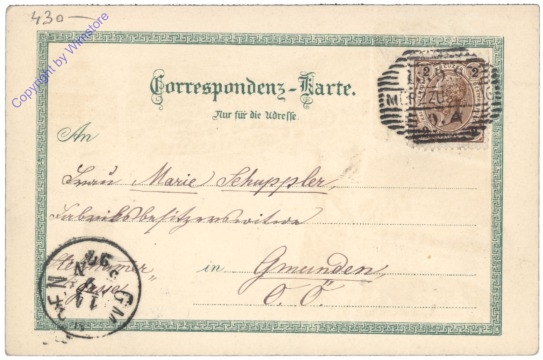 430-
Copyright by Wiimstore
Correspondenz-Karte.
Nur für die Adresse.
An
Frau Marie Schuppler,
Fabriksbesitzerswitwe
in Gmunden
O. Ö.